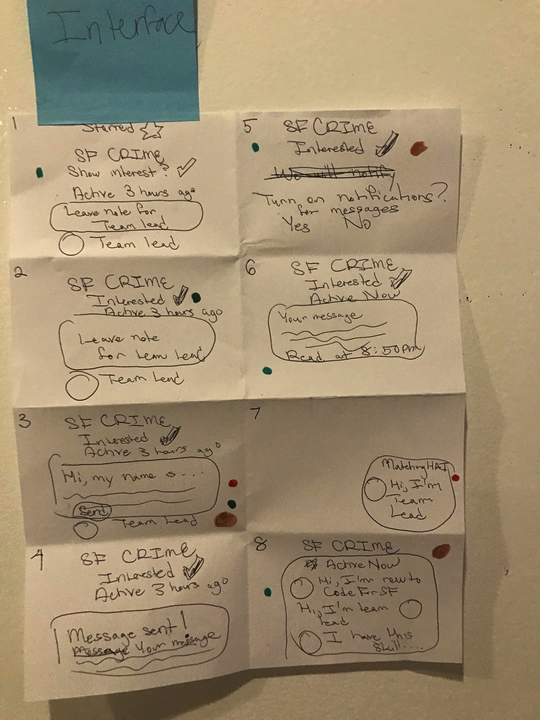 Interface
1
Starred
SF CRIME
Show interest?
Active 3 hours ago
Leave note for
Team lead
Team lead
2
SF CRIME
Interested
Active 3 hours ago
Leave note
for team lead
Team lead
3
SF CRIME
Interested
Active 3 hours ago
Hi, my name is...
Send
Team lead
4
SF CRIME
Interested
Active 3 hours ago
Message sent!
Your message
5
SF CRIME
Interested
We will notify
Turn on notifications?
for messages
Yes No
6
SF CRIME
Interested
Active Now
Your message
Read at 8:50pm
7
Matching HAI
Hi, I'm
Team
Lead
8
SF CRIME
Active Now
Hi, I'm new to
Code for SF
Hi, I'm team
lead
I have this
skill....